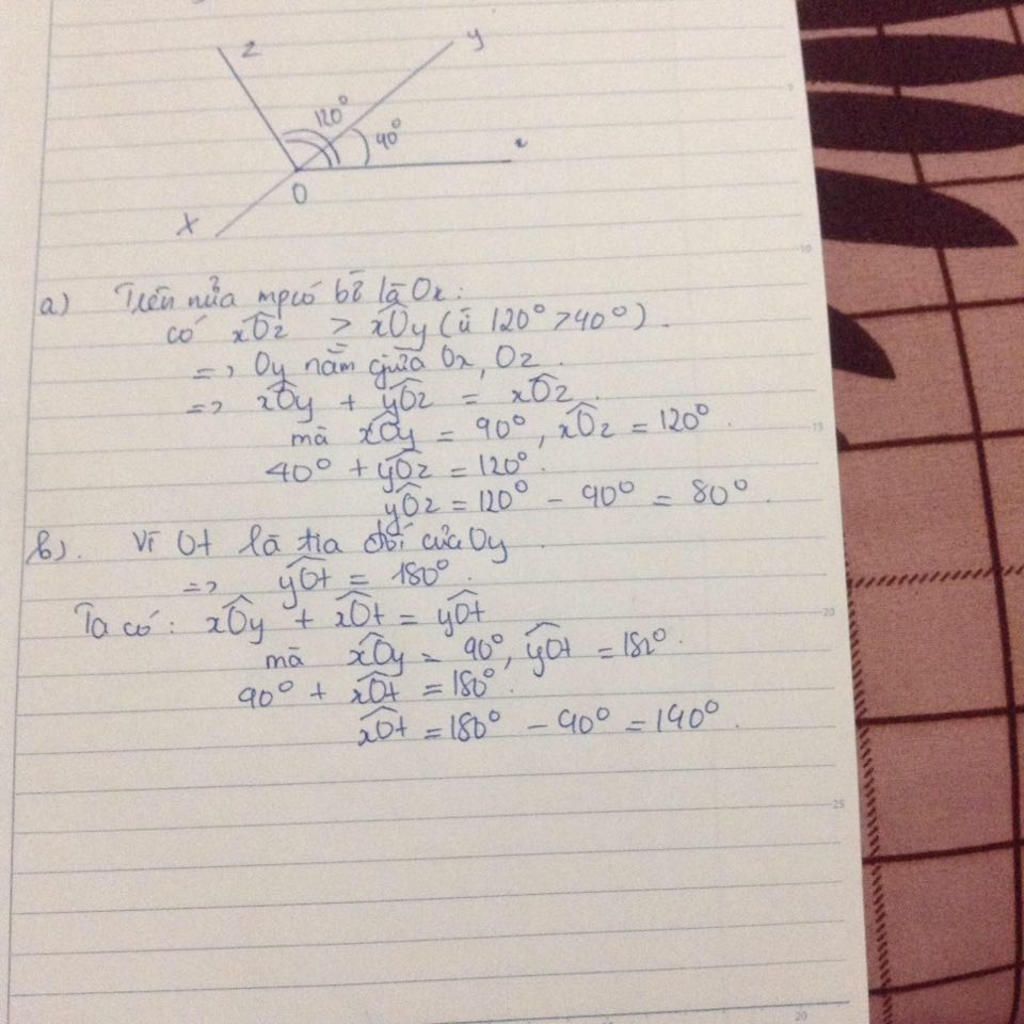 z
y
120°
40°
x
O
X
a) Trên nửa mp có bờ là Ox:
có xOz > xOy (vì 120° > 40°).
=> Oy nằm giữa Ox, Oz.
=> xOy + yOz = xOz.
mà xOy = 40°, xOz = 120°.
40° + yOz = 120°.
yOz = 120° - 40° = 80°.
b). Vì Ot là tia đối của Oy.
=> yOt = 180°.
Ta có: xOy + xOt = yOt
mà xOy = 40°, yOt = 180°.
40° + xOt = 180°.
xOt = 180° - 40° = 140°.
10
15
20
25
20